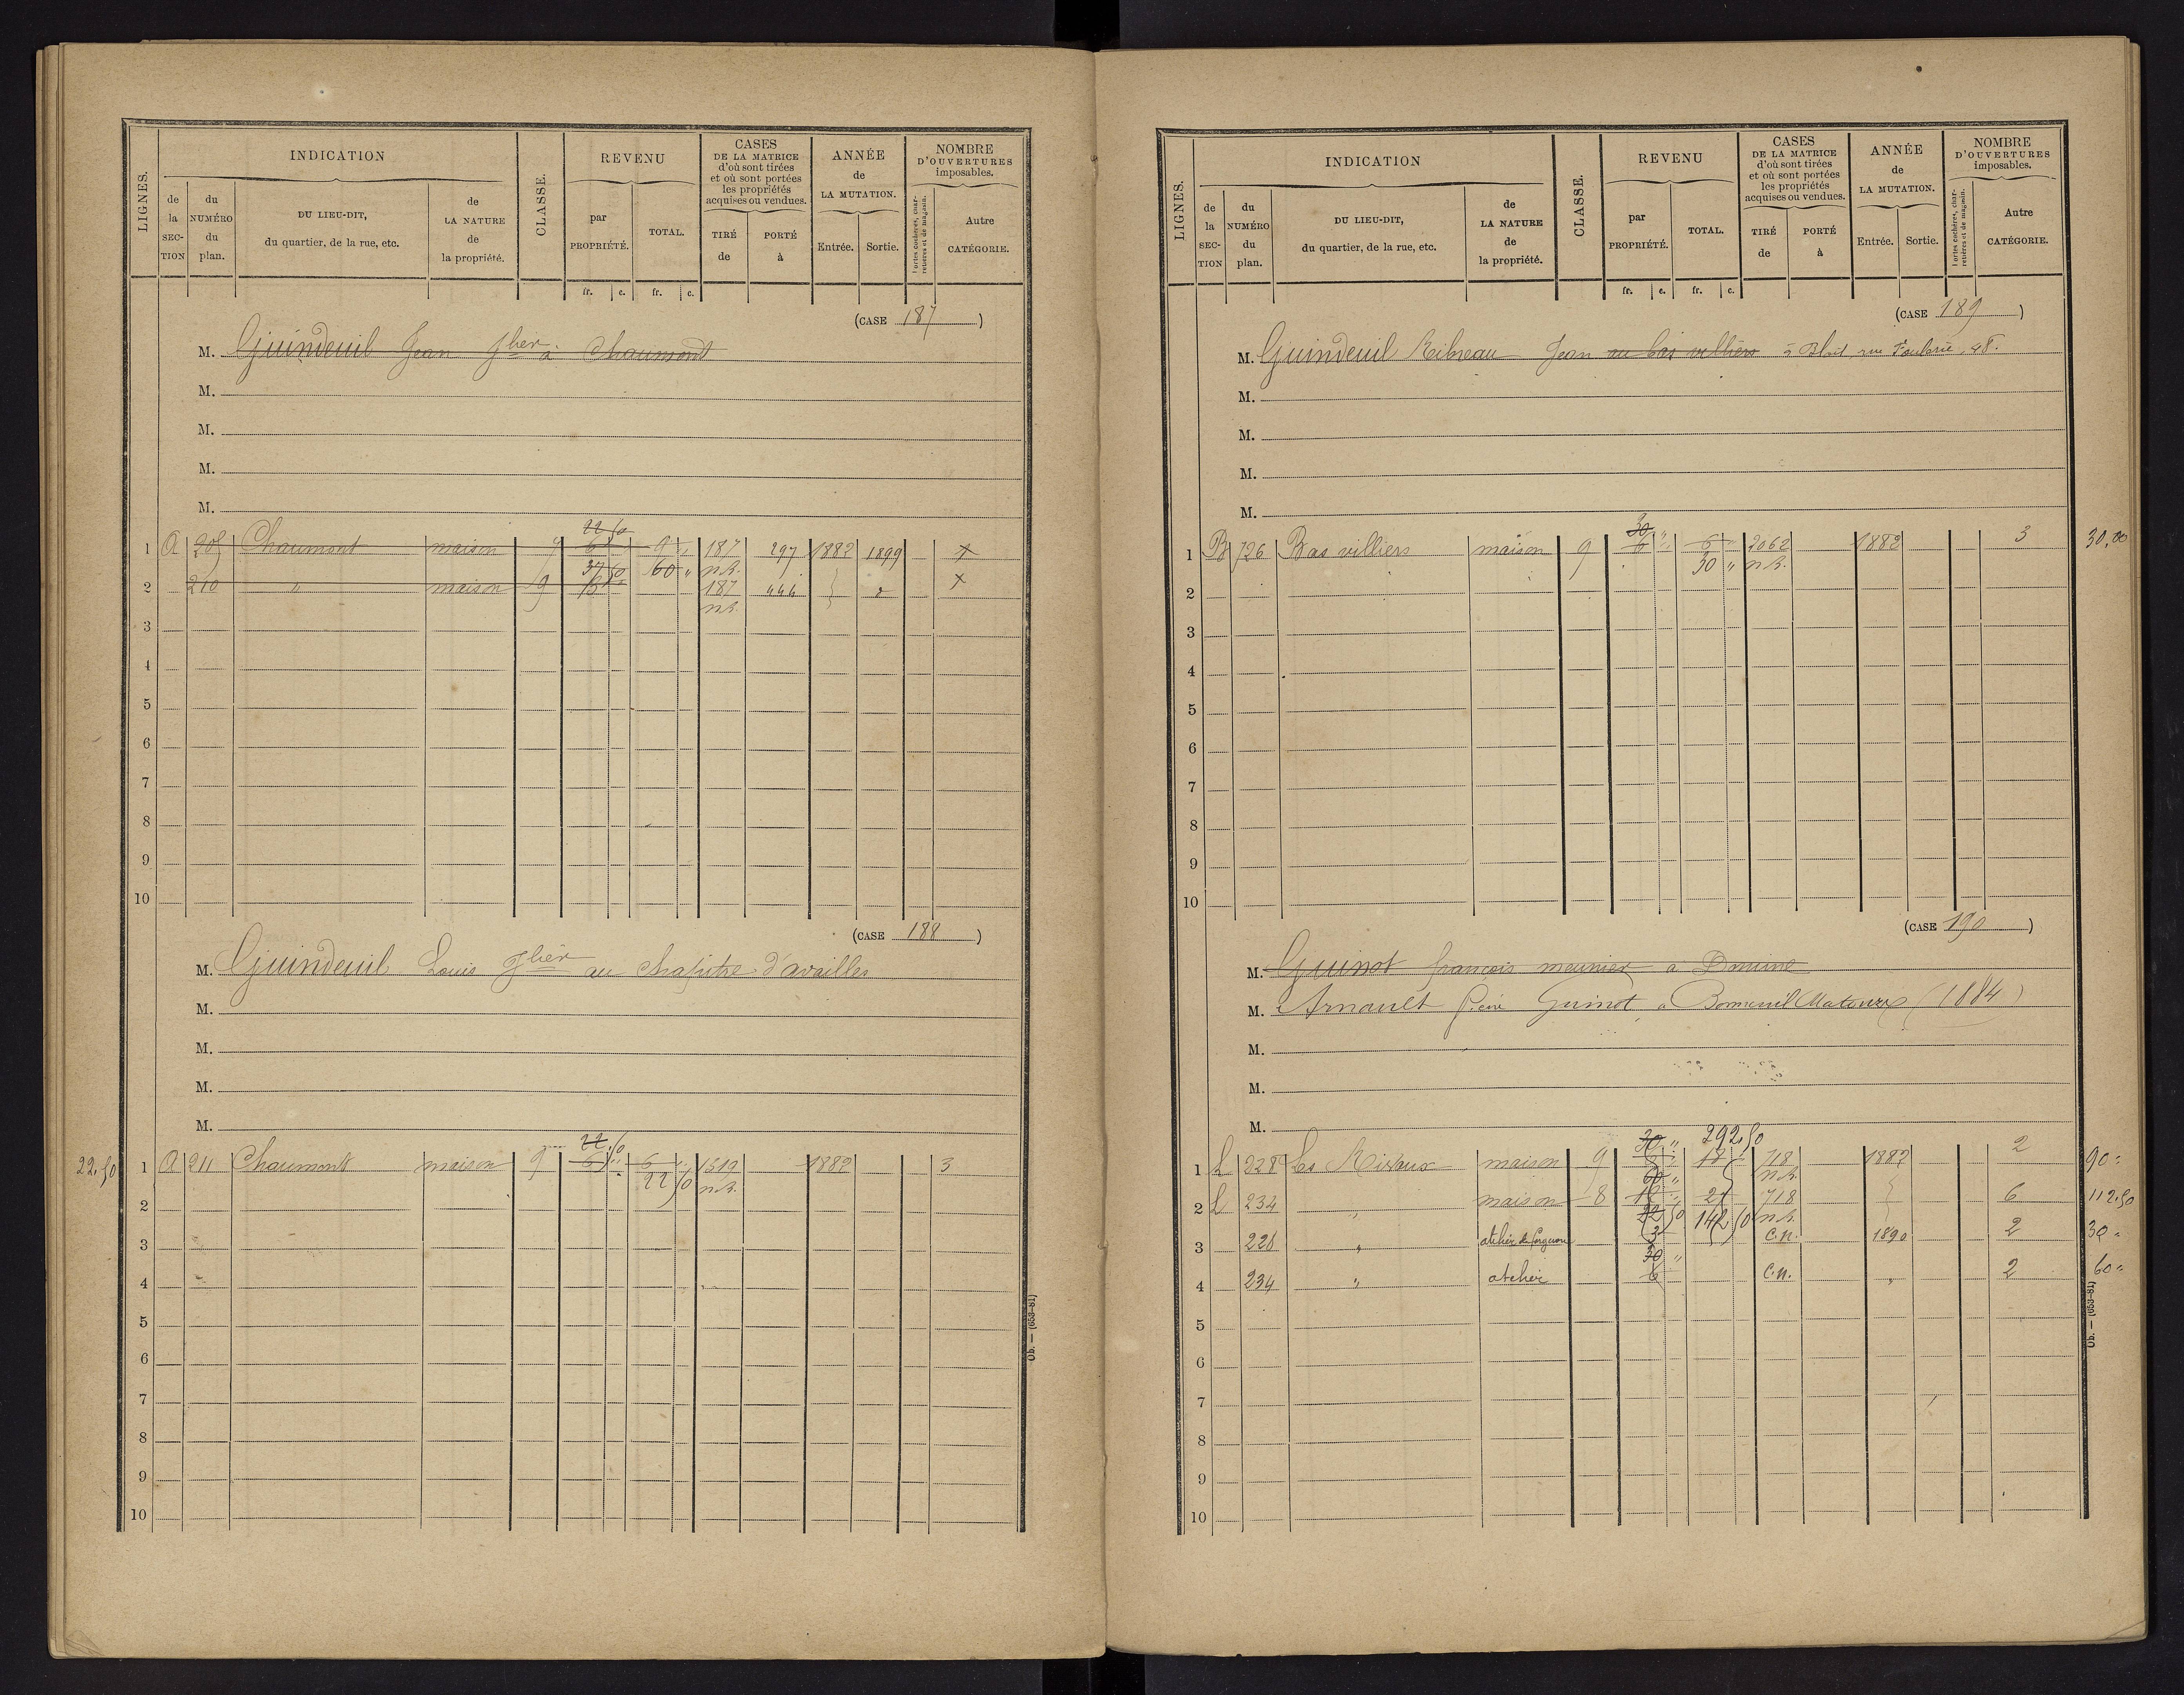 LIGNES.
INDICATION
de la SECTION
du NUMÉRO du plan.
DU LIEU-DIT, du quartier, de la rue, etc.
de LA NATURE de la propriété.
CLASSE.
REVENU
par PROPRIÉTÉ.
TOTAL.
CASES DE LA MATRICE d'où sont tirées et où sont portées les propriétés acquises ou vendues.
TIRÉ de
PORTÉ à
ANNÉE de LA MUTATION.
Entrée.
Sortie.
NOMBRE D'OUVERTURES imposables.
Portes cochères, charretières et de magasin.
Autre CATÉGORIE.
fr. c. fr. c.
(CASE 187)
M. Guindeuil Jean Jlier à Chaumont
M.
M.
M.
M.
22 50
1 A 209 Chaumont maison 9 6 9 " 187 297 1882 1899 x
37 50 60 " n.R.
2 210 " maison 9 187 444 " x
n.R.
3
4
5
6
7
8
9
10
(CASE 188)
M. Guindeuil Louis Jlier au chapitre d'availles
M.
M.
M.
M.
22 50
22.50 1 A 211 Chaumont maison 9 6 " 6 " 1519 1882 3
22 50 n.R.
2
3
4
5
6
7
8
9
10
Ob. — (653-81)
LIGNES.
INDICATION
de la SECTION
du NUMÉRO du plan.
DU LIEU-DIT, du quartier, de la rue, etc.
de LA NATURE de la propriété.
CLASSE.
REVENU
par PROPRIÉTÉ.
TOTAL.
CASES DE LA MATRICE d'où sont tirées et où sont portées les propriétés acquises ou vendues.
TIRÉ de
PORTÉ à
ANNÉE de LA MUTATION.
Entrée.
Sortie.
NOMBRE D'OUVERTURES imposables.
Portes cochères, charretières et de magasin.
Autre CATÉGORIE.
fr. c. fr. c.
(CASE 189)
M. Guindeuil Ribreau Jean au bas villiers à Blois, rue Foulerie, 48.
M.
M.
M.
M.
30
1 B 726 Bas villiers maison 9 6 " 6 " 2062 1882 3 30,00
30 " n.R.
2
3
4
5
6
7
8
9
10
(CASE 190)
M. Guinot françois meunier à
M. Arnault Guinot à Bonneuil Matours (1884)
M.
M.
M.
30 " 292,50
1 L 228 Les maison 9 18 718 1882 2 90 "
60 " n.R.
2 L 234 " maison 8 18 " 27 718 6 112.50
22 50 142 50 n.R.
3 228 " atelier de 3 C.N. 1890 2 30 "
30 "
4 234 " atelier 6 C.N. " 2 60 "
5
6
7
8
9
10
Ob. — (653-81)